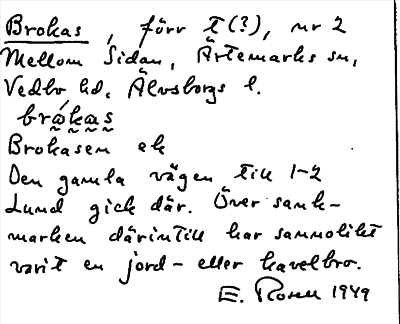 Brokas, förr t(?), nr 2
Mellom Sidan, Ärtemarks sn,
Vedbo hd, Älvsborgs l.
brókas
Brokasen ek
Den gamla vägen till 1-2
Lund gick där. Över sank-
marken därintill har sannolikt
varit en jord- eller kavelbro.
E. Rosell 1949